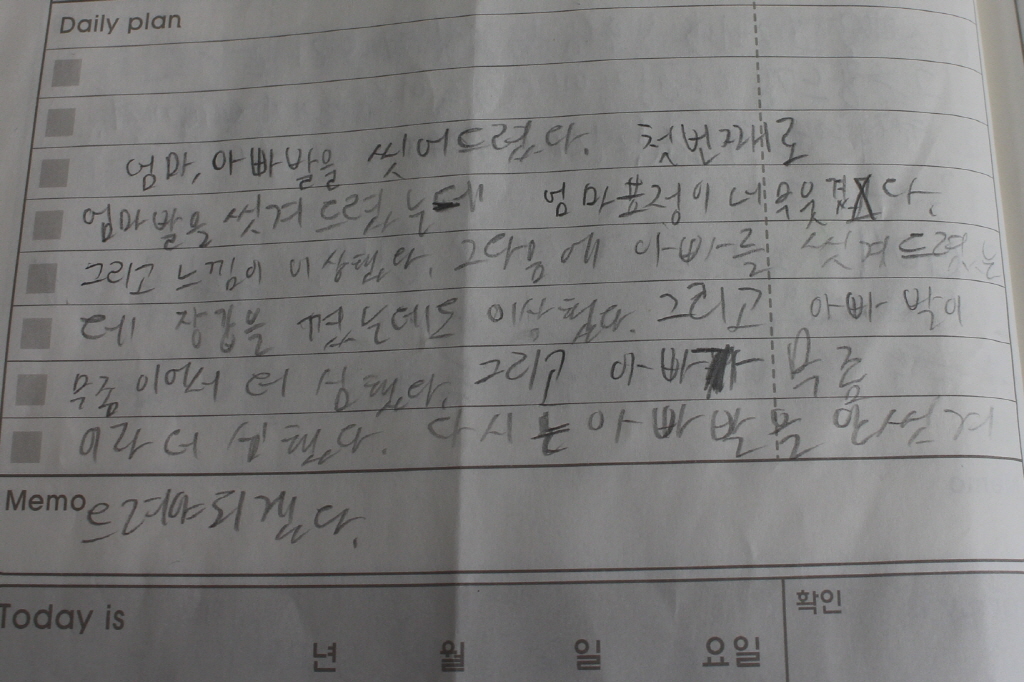 Daily plan
엄마, 아빠발을 씻어드렸다. 첫번째로
엄마발을 씻겨 드렸는데 엄마표정이 너무웃겼다.
그리고 느낌이 이상했다. 그다음에 아빠를 씻겨드렸는
데 장갑을 꼈는데도 이상했다. 그리고 아빠 발이
무좀이어서 더 심했다. 그리고 아빠가 무좀
이라 더 심했다. 다시는 아빠발을 안씻겨
Memo 드려야되겠다.
Today is
년 월 일 요일
확인